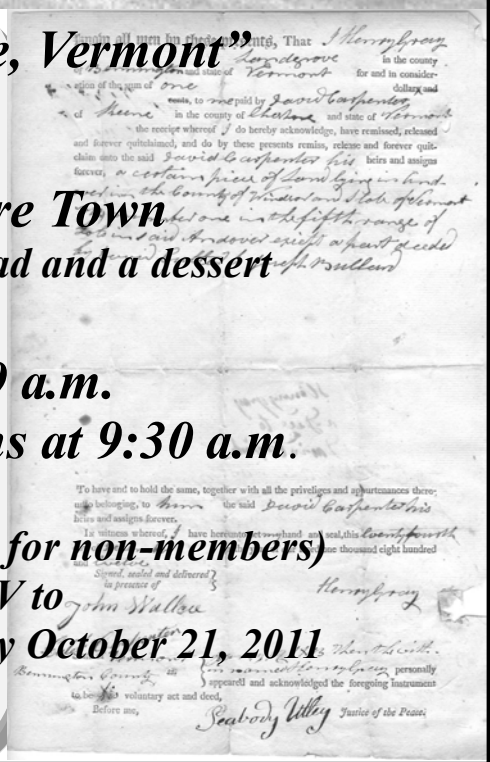 Know all men by these presents, That I Henry Gray
e, Vermont”
Landgrove in the county
of Bennington and state of Vermont for and in consider-
ation of the sum of one dollar and
cents, to me paid by David Carpenter
of Keene in the county of Cheshire and state of Vermont
the receipt whereof I do hereby acknowledge, have remissed, released
and forever quitclaimed, and do by these presents remiss, release and forever quit-
claim unto the said David Carpenter his heirs and assigns
forever, a certain piece of Land lying in And
over in the County of Windsor and State of Vermont
re Town
one in the fifth range of
in said Andover except a part deeded
ad and a dessert
Bullard
0 a.m.
ns at 9:30 a.m.
To have and to hold the same, together with all the priveliges and appurtenances there-
unto belonging, to him the said David Carpenter his
heirs and assigns forever.
In witness whereof, I have hereunto set my hand and seal, this twenty fourth
for non-members)
one thousand eight hundred
and twelve
Signed, sealed and delivered
in presence of
Henry Gray
V to
John Wallace
y October 21, 2011
Bennington County personally
appeared and acknowledged the foregoing instrument
to be his voluntary act and deed,
Before me,
Seabody Utley Justice of the Peace.